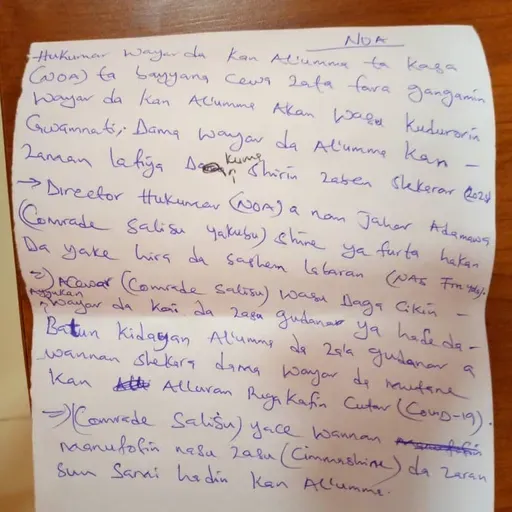 NOA
Hukumar Wayar da Kan Al'umma ta Kasa
(NOA) ta bayyana Cewa Zata fara gangamin
Wayar da Kan Al'umma Akan Wasu Kudurorin
Gwamnati, Dama Wayar da Al'umma Kan -
Zaman lafiya Da kuma Shirin Zaben Shekarar 2023
→ Director Hukumar (NOA) a nan Jahar Adamawa
(Comrade Salisu Yakubu) Shine ya furta hakan
Da yake hira da sashem labaran (NAS FM
⇒) Acewar (Comrade Salisu) Wasu Daga Cikin -
Ayyukan
Wayar da Kai da Zasu gudanar ya hada da -
Batun Kidayan Al'umma da Za'a gudanar a
Wannan Shekara dama Wayar da mutane
Kan Alluran Riga Kafin Cutar (Covid-19).
⇒) (Comrade Salisu) yace Wannan
manufofin nasu Zasu (Cimmashine) da Zaran
Sun Sami hadin Kan Al'umma.